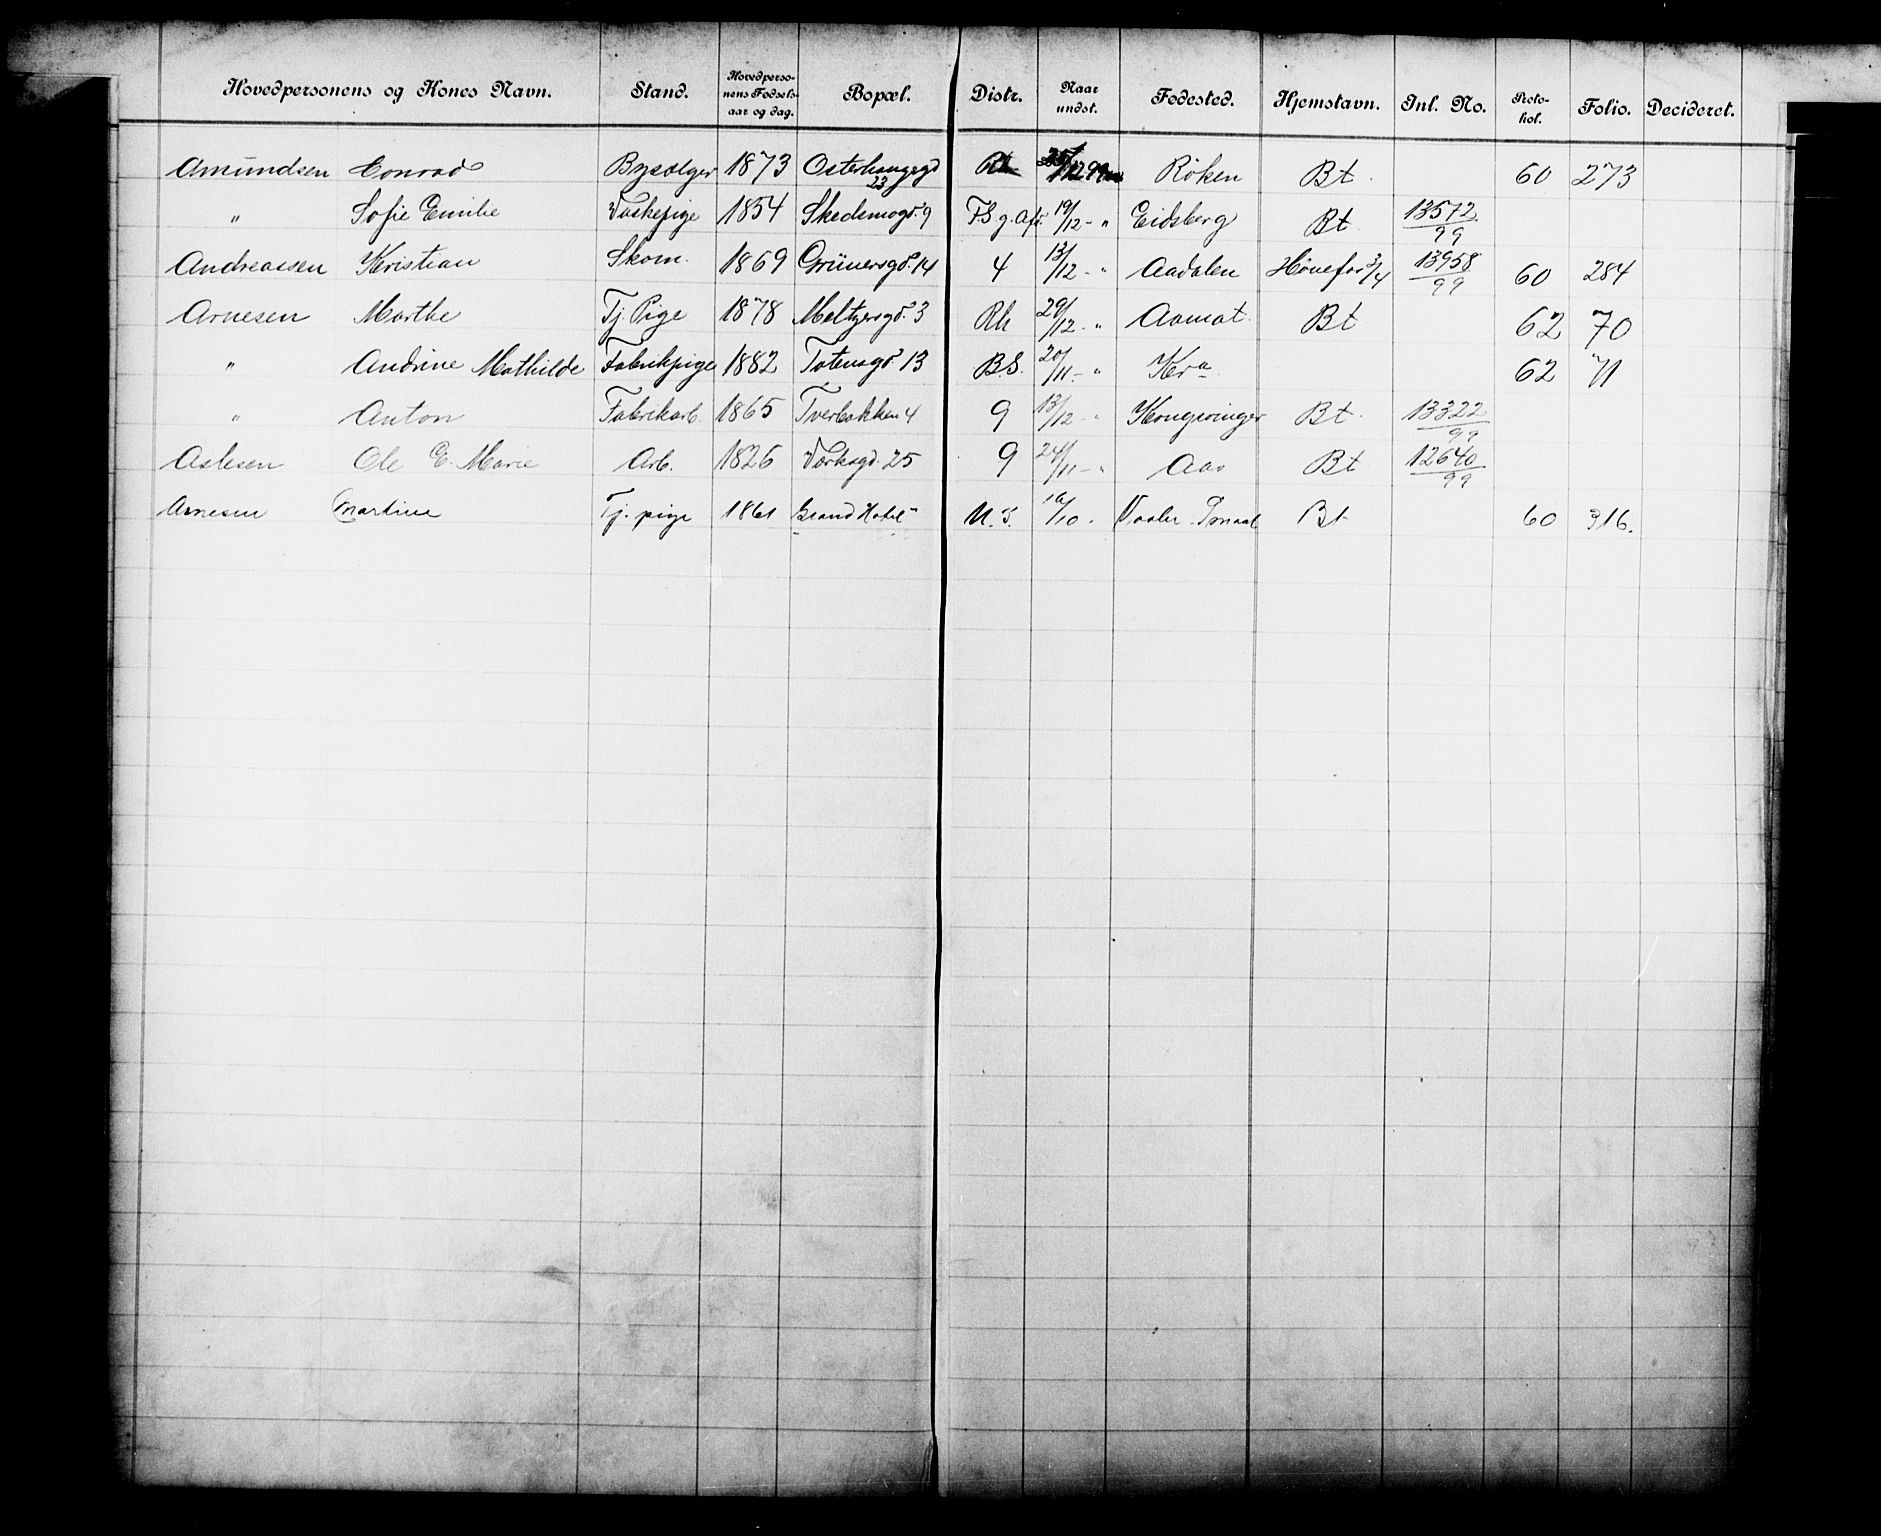 Hovedpersonens og Kones Navn. Stand. Hovedpersonens Fødselsaar og dag. Bopæl. Distr. Naar undst. Fødested. Hjemstavn. Inl. No. Protokol. Folio. Decideret.
Amundsen Conrad Bysælger 1873 Osterhausgd 23 Rh 12 99 Røken Bt. 60 273
" Sofie Emilie Vaskepige 1854 Skedsmogd. 9 F.S.g. Afd. 19/12 - " Eidsberg Bt. 13572/99
Andreassen Kristian Skom. 1869 Grünersgd. 14 4 13/12 - " Aadalen Hønefos 3/4 13958/99 60 284
Arnesen Marthe Tj. Pige 1878 Meltzersgd. 3 Rh 29/12 - " Aamot. Bt 62 70
" Andrine Mathilde Fabrikpige 1882 Totensgd. 13 B.S. 20/11 - " Kra. 62 71
" Anton Fabrikarb. 1865 Tverbakken 4 9 13/12 - " Kongsvinger Bt. 13322/99
Aslesen Ole E. Marie Arb. 1826 Værksgd. 25 9 24/11 - " Aas Bt 12640/99
Arnesen Martine Tj. pige 1861 Grand Hotel U.S. /10. Vaaler Bt 60 316.